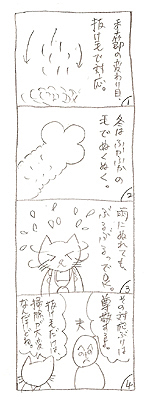 季節の変わり目、
抜け毛で対応。
1
冬はふかふかの
毛でぬくぬく。
2
雨にぬれても、
ぶるぶるっでOK。
3
その対応ぶりは
尊敬する。
夫
抜け毛だけは
掃除が大変
なんだけどね。
4